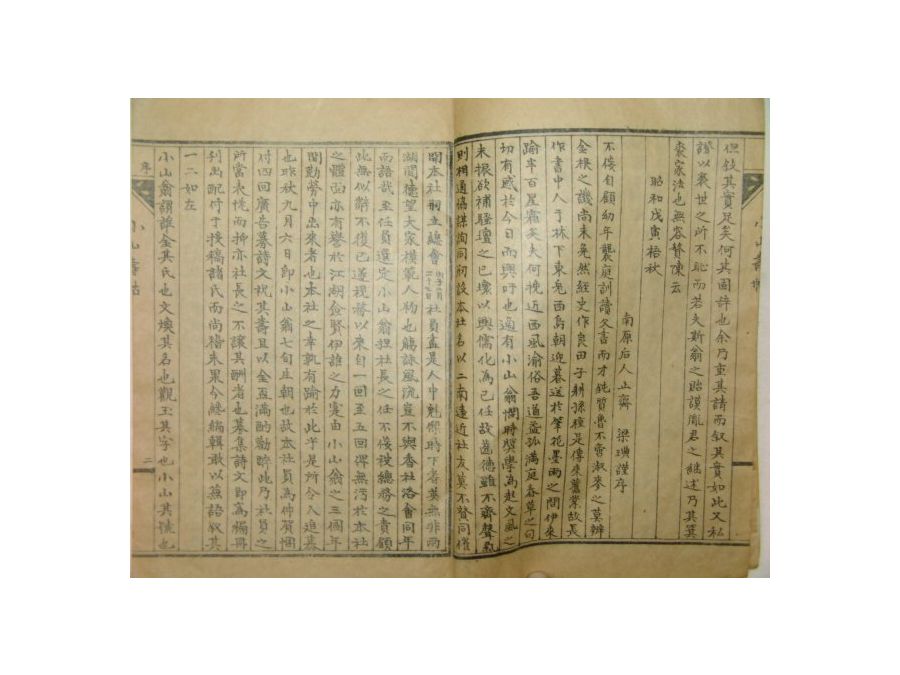 但敍其實足矣何其固辭也余乃重其請而敍其實如此又私
證以衰世之所不恥而若夫斯翁之貽謨胤君之繼述乃其箕
裘家法也無容贅陳云
昭和戊寅梧秋
南原后人止齋 梁 謹序
不佞自顧幼年襲庭訓讀父書而才鈍質魯不啻菽麥之莫辨
金根之譏尚未免然經史作良田子耕孫種是傳來舊業故長
作書中人于林下東兎西烏朝迎暮送於筆花墨雨之間伊來
踰半百星霜矣夫何挽近西風渝俗吾道益孤滿庭春草之句
切有感於今日而興吁也適有小山翁憫時獎學為起文風之
未振欲補騷壇之已壞以興儒化為己任故適德雖不齊聲氣
則相通協謀詢同初設本社名以二南遠近社友莫不贊同催
開本社創立總會 社員盖是人中魁傑時下耆英無非兩
湖聞德望大家模範人物也觴詠風流豈不與香社洛會同年
而語哉至任員選定小山翁担社長之任不佞被總務之責顧
此無似辭不獲已遂視務以來自一回至五回得無汚於本社
之體面亦有譽於江湖僉賢伊誰之力寔由小山翁之三個年
間勤勞中出來者也本社之幸孰有踰於此乎是所令人追慕
也昨秋九月六日即小山翁七旬庄朝也故本社員為伸賀悃
付四回廣告募詩文祝其壽且以金盃滿酌勸醉此乃社員之
所當表忱而抑亦社長之不讓其酬者也募集詩文即為楊冊
刊出配付于授稿諸氏而尚稽朱果今纔編輯敢以蕪語敍其
一二如左
小山翁謂誰金其氏也文煥其名也觀玉其字也小山其號也
序
二
小山壽帖